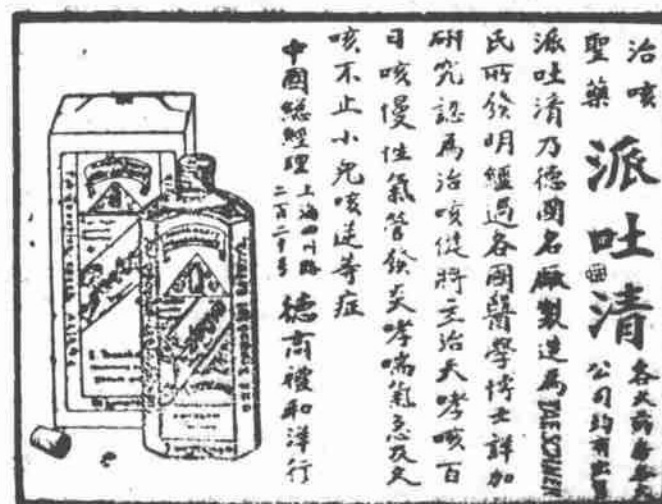 治咳
聖藥
派吐清
各大藥房各大
公司均有出售
派吐清乃德國名廠製造為TAESCHNER
氏所發明經過各國醫學博士詳加
研究認為治咳健將主治天哮咳百
日咳慢性氣管發炎哮喘氣急及久
咳不止小兒咳逆等症
中國總經理
上海四川路
二百二十号
德商禮和洋行